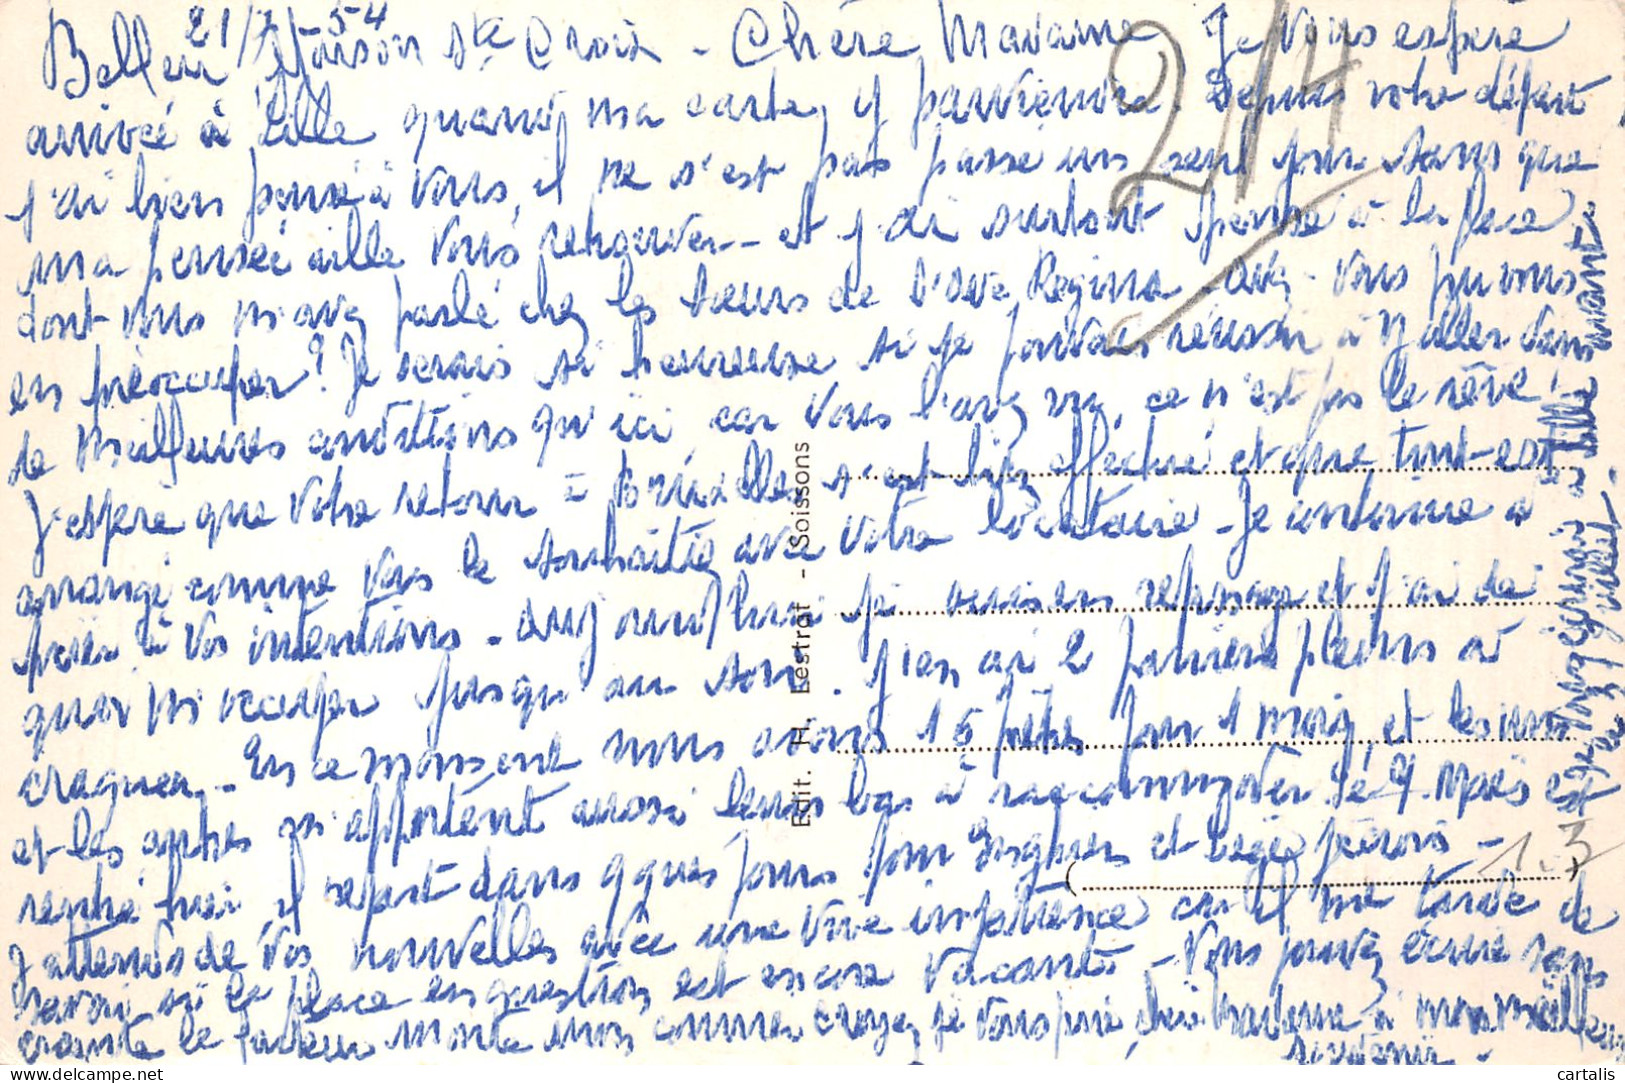 21/7/54
Belleu Maison Ste Croix - Chère Madame Je vous espère
arrivée à Lille quand ma carte y parviendra. Depuis votre départ
j'ai bien pensé à vous, il ne s'est pas passé un seul jour sans que
ma pensée aille vous retrouver - et j'ai surtout pensé à la place
dont vous m'avez parlé chez les sœurs de l'Ave Regina - avez-vous pu vous
en préoccuper? Je serais si heureuse si je pouvais réussir à y aller dans
de meilleures conditions qu'ici car vous l'avez vu, ce n'est pas le rêve!
J'espère que votre retour à Bruxelles s'est bien effectué et que tout est
arrangé comme vous le souhaitiez avec votre locataire - Je continue à
prier à vos intentions - aujourd'hui je suis en repassage et j'ai de
quoi m'occuper jusqu'au soir. J'en ai 2 paniers pleins à
craquer - En ce moment nous avons 15 prêtres pour 1 mois, et les uns
et les autres m'apportent aussi leurs bas à raccommoder
rentré hier, il repart dans qques jours pour Enghien et
J'attends de vos nouvelles avec une vive impatience car il me tarde de
savoir si la place en question est encore vacante - Vous pouvez écrire sans
crainte le facteur monte mon croyez je vous prie, chère Madame à mon meilleur
souvenir.
à Lille avant
juillet.
24
1.3
Edit. H. Lestrat - Soissons
cartalis